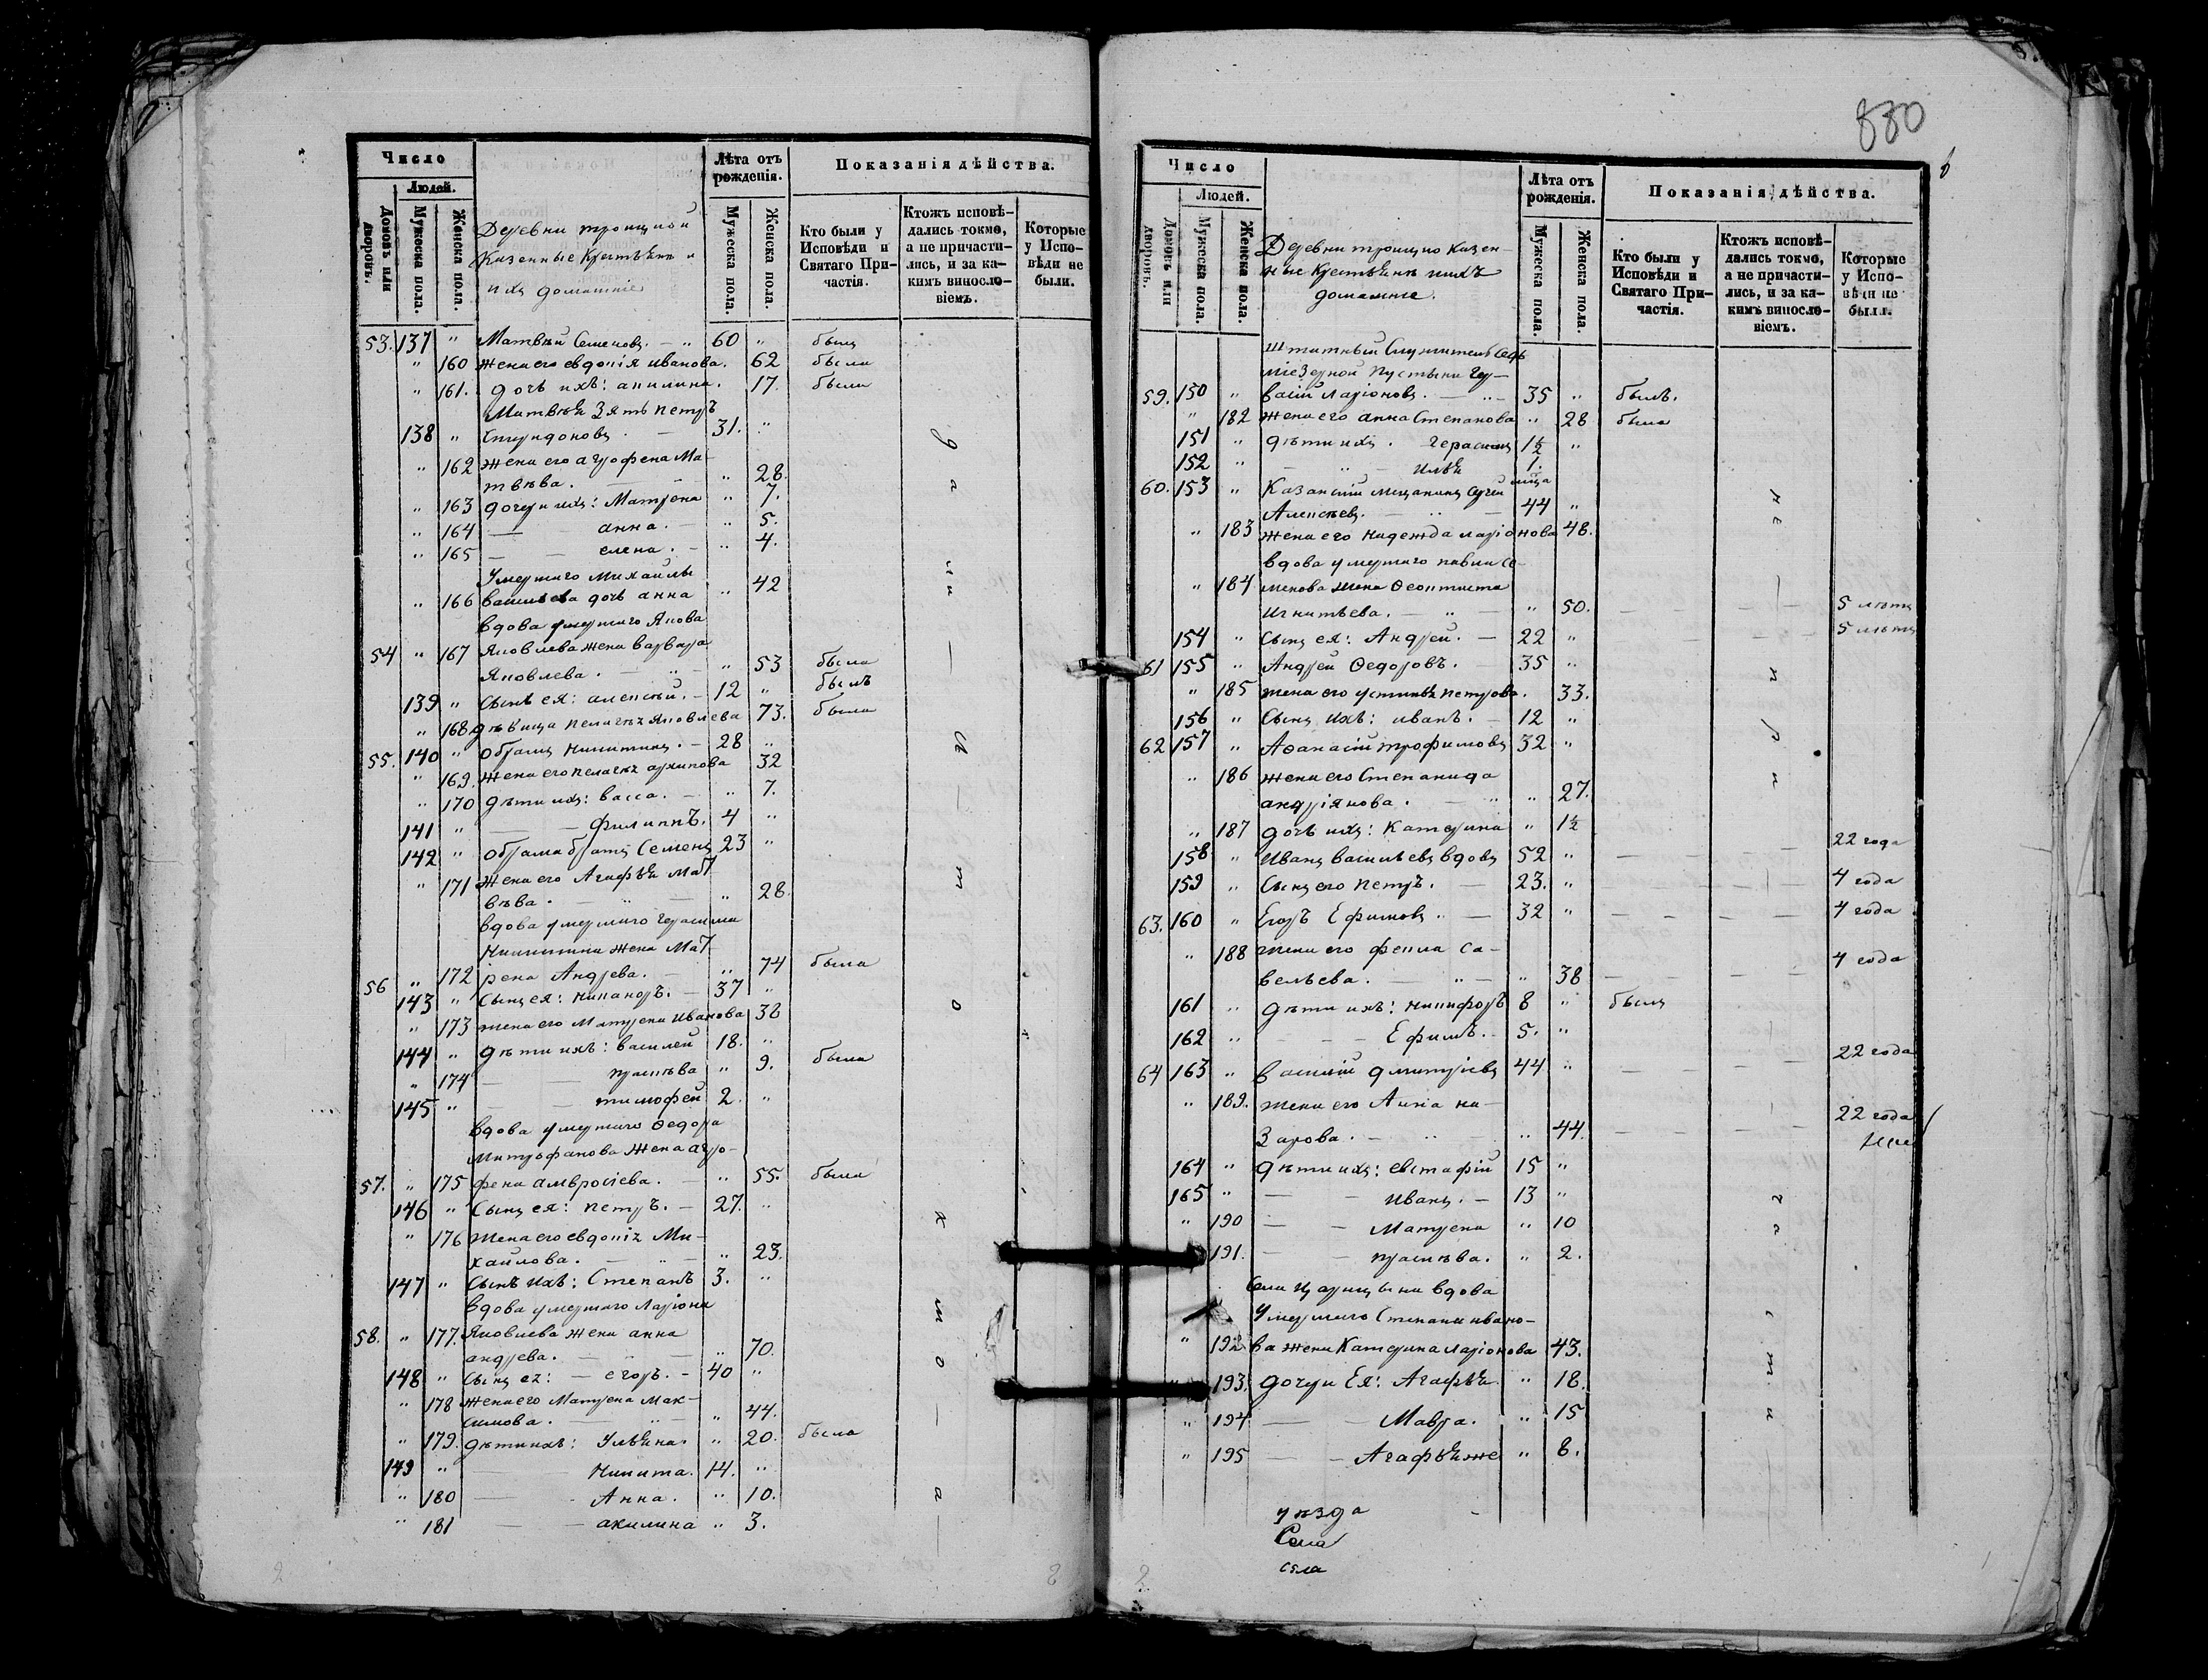 880
Число
Людей.
Домовъ или дворовъ.
Мужеска пола.
Женска пола.
Деревни троицкой
Казенные Крестьяня и
ихъ домашніе
Лѣта отъ рожденія.
Мужеска пола.
Женска пола.
Показанія дѣйства.
Кто были у Исповѣди и Святаго Причастія.
Ктожъ исповѣдались токмо, а не причастились, и за какимъ винословіемъ.
Которые у Исповѣди не были.
53. 137 " Матвѣй Семеновъ. — " 60 " былъ
" 160 жена его евдокія иванова. 62 была
" 161. дочь ихъ: акилина. 17. была
Матвѣя Зять петръ
138 " 31. "
" 162 жена его агрофена Ма-
твѣева. — " 28.
" 163 дочери ихъ: Матрена " 7.
" 164 — анна. — " 5.
" 165 — — елена. — " 4.
Умершаго Михайлы
" 166 васильева дочь анна " 42
вдова умершаго Якова
54 " 167 Яковлева жена варвара
Яковлева. — " — " 53 была
139 " Сынъ ея: алексѣй. — 12 " былъ
" 168. дѣвица пелагея Яковлева 73. была
55. 140 " Никитинъ. — 28 "
" 169. жена его пелагея архипова 32
" 170 дѣти ихъ: васса. — " 7.
141 " — — филиппъ. 4 "
142 " братъ Семенъ 23 "
" 171 жена его Агафья Мат-
вѣва. — " — " 28.
вдова умершаго герасима
Никитина жена Мат-
56 " 172 рена Андрева. — " 74 была
143 " Сынъ ея: никаноръ. — 37 "
" 173 жена его Матрена Иванова 38
144 " дѣти ихъ: василей 18. "
" 174 — — праскѣва " 9. была
145 " — — тимофей 2. "
вдова умершаго Ѳедора
Митрофанова жена агро-
57. " 175 фена амвросіева. — " 55. была
146 " Сынъ ея: петръ. — 27. "
" 176 жена его евдокія Ми-
хайлова. — — " 23.
147 " Сынъ ихъ: Степанъ 3. "
вдова умершаго Ларіона
58. " 177. Яковлева жена анна
андрева. — " — " 70.
148 " Сынъ ея: — егоръ. — 40 "
" 178 жена его Матрена Мак-
симова. — " — " 44.
" 179. дѣти ихъ: Ульяна. " 20. была
149 " — Никита. 14. "
" 180 — Анна. " 10.
" 181 — — акилина " 3.
Число
Людей.
Домовъ или дворовъ.
Мужеска пола.
Женска пола.
Деревни троицко казен-
ные Крестьяня ихъ
домашніе.
Лѣта отъ рожденія.
Мужеска пола.
Женска пола.
Показанія дѣйства.
Кто были у Исповѣди и Святаго Причастія.
Ктожъ исповѣдались токмо, а не причастились, и за какимъ винословіемъ.
Которые у Исповѣди не были.
штатный Служитель Седь
міезерной пустыни Гер-
59. 150 " васій ларіоновъ. — " — 35 " былъ.
" 182 жена его анна Степанова " 28 была
151 " дѣти ихъ. Герасимъ 1½ "
152 " — " — Илья 1.
60. 153 " Казанскій мещанинъ
Алексѣевъ. — " — 44 "
" 183 жена его надежда ларіонова 48.
вдова умершаго павла Се-
" 184 менова жена Ѳеоктиста
Игнатьева. — " — " 50. — — — — 5 лѣтъ
154 " Сынъ ея: Андрей. — 22 " 5 лѣтъ
61 155 " Андрей Ѳедоровъ. — 35 "
" 185 жена его устинья петрова. 33.
156 " Сынъ ихъ: иванъ. — 12 "
62 157 " Аѳанасій трофимовъ 32 "
" 186 жена его Степанида
андріянова. — " " 27.
" 187 дочь ихъ: Катерина " 1½
158 " Иванъ васильевъ вдовъ 52 " — — — — 22 года
159 " Сынъ его петръ. — 23. " — — — — 4 года
63. 160 " Егоръ Ефимовъ. — 32 " — — — — 4 года
" 188 жена его фекла са-
вельева. — " — " 38 — — — — 4 года
161 " дѣти ихъ: никифоръ 8 " былъ
162 " — — — Ефимъ. — 5. "
64 163 " василій дмитріевъ 44 " — — — — 22 года
" 189. жена его Анна на-
зарова. — " — " 44. — — — — 22 года
164 " дѣти ихъ: евстафій 15 "
165 " — — Иванъ. — 13 "
" 190 — — Матрена " 10
191. — — праскѣва. " 2.
Села Царицына вдова
Умершаго Степана ивано-
" 192 ва жена Катерина ларіонова 43.
" 193. дочери Ея: Агафья. " 18.
" 194 — — Мавра. " 15
" 195 — — Агафья же " 8.
уѣзда
Села
села